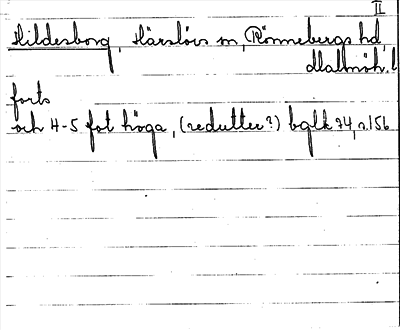 II
Hildesborg, Härslövs sn, Rönnebergs hd,
Malmöh. l
forts
och 4-5 fot höga, (redutter?) bglk 74, n. 156